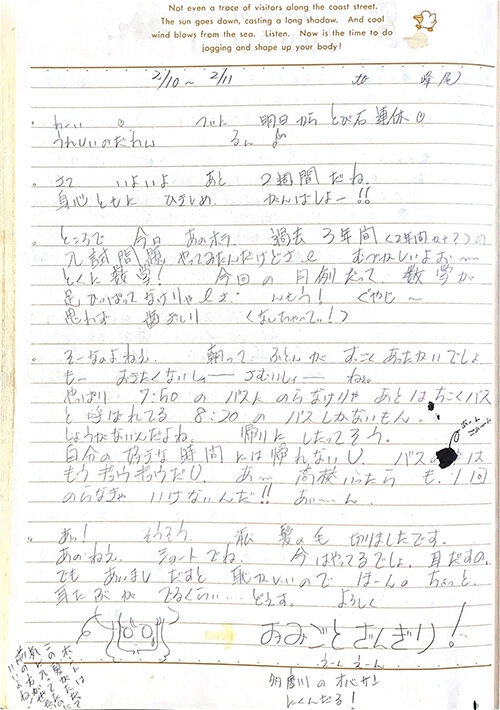 Not even a trace of visitors along the coast street.
The sun goes down, casting a long shadow. And cool
wind blows from the sea. Listen. Now is the time to do
jogging and shape up your body!
2/10〜2/11 to 峰尾
わーい 明日から とび石連休
うれしいのだわん るん
さて いよいよ あと 2週間だね.
身心ともに ひきしめ がんばしょー!!
ところで 今日 あのホラ 過去3年間(2年間かナ?)の
入試問題 やってみたんだけどさe むづかしいよお〜
とくに数学! 今回の月例だって 数学が
足 かっぱってなけりゃeさ んもう! ぐやじ〜
思わず 歯ぎしり (なんちゃってっ!)
そーなのよねえ. 朝って ふとんが すっごく あったかいでしょ
もー おきたくないしィー さむいしィー ねぇ.
やっぱり 7:50のバスに のらなけりゃ あとは ちこくバス
と呼ばれてる 8:20のバスしかないもん.
しょうがないんだよね. 帰りにしたってそう.
自分の好きな時間には帰れないし バスの は
もうギュウギュウだし. あー 高校いったら も、1回
のらなきゃ いけないんだ!! あぃーん.
あっ! そうそう. 私 髪の毛 切りましたです.
あのねえ. ショートでね. 今はやってるでしょ. 耳だすの.
でも あんまし だすと 恥かしいので ほーんのちょっと.
耳たぶが でるぐらい… どうえす. よろしく
おみごと ざんぎり!
えーん えーん
多摩川の オバサン
にくんだる!